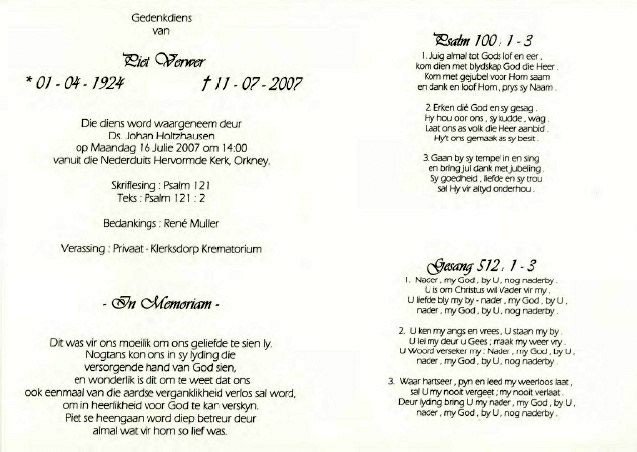 Gedenkdiens
van
Piet Verwer
* 01 - 04 - 1924 † 11 - 07 - 2007
Die diens word waargeneem deur
Ds. Johan Holtzhausen
op Maandag 16 Julie 2007 om 14:00
vanuit die Nederduits Hervormde Kerk, Orkney.
Skriflesing : Psalm 121
Teks : Psalm 121 : 2
Bedankings : René Muller
Verassing : Privaat - Klerksdorp Krematorium
- In Memoriam -
Dit was vir ons moeilik om ons geliefde te sien ly.
Nogtans kon ons in sy lyding die
versorgende hand van God sien,
en wonderlik is dit om te weet dat ons
ook eenmaal van die aardse verganklikheid verlos sal word,
om in heerlikheid voor God te kan verskyn.
Piet se heengaan word diep betreur deur
almal wat vir hom so lief was.
Psalm 100 : 1 - 3
1. Juig almal tot Gods lof en eer ,
kom dien met blydskap God die Heer .
Kom met gejubel voor Hom saam
en dank en loof Hom , prys sy Naam .
2. Erken dié God en sy gesag .
Hy hou oor ons , sy kudde , wag .
Laat ons as volk die Heer aanbid .
Hy't ons gemaak as sy besit .
3. Gaan by sy tempel in en sing
en bring jul dank met jubeling .
Sy goedheid , liefde en sy trou
sal Hy vir altyd onderhou .
Gesang 512 : 1 - 3
1. Nader , my God , by U , nog naderby .
U is om Christus wil Vader vir my .
U liefde bly my by - nader , my God , by U ,
nader , my God , by U , nog naderby .
2. U ken my angs en vrees , U staan my by .
U lei my deur u Gees ; maak my weer vry .
U Woord verseker my : Nader , my God , by U ,
nader , my God , by U , nog naderby .
3. Waar hartseer , pyn en leed my weerloos laat ,
sal U my nooit vergeet ; my nooit verlaat .
Deur lyding bring U my nader , my God , by U ,
nader , my God , by U , nog naderby .